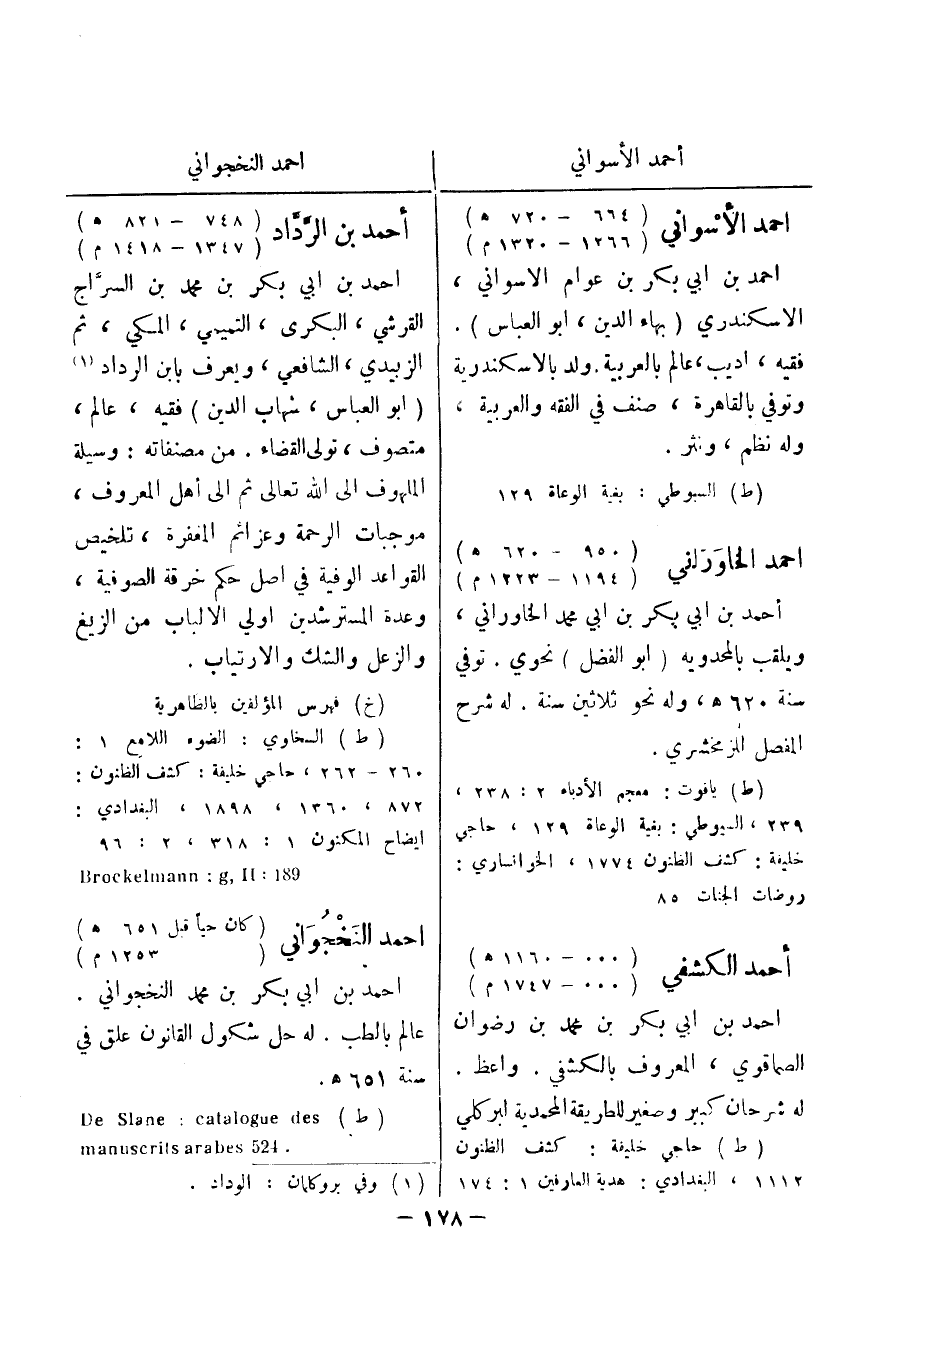 أحمد الأسواني
احمد النخجواني
احمد الأسْواني ( ٦٦٤ – ٧٢٠ ه )
( ١٢٦٦ – ١٣٢٠ م )
احمد بن ابي بكر بن عوام الاسواني ،
الاسكندري ( بهاء الدين ، ابو العباس ) .
فقيه ، اديب ، عالم بالعربية . ولد بالاسكندرية
وتوفي بالقاهرة ، صنف في الفقه والعربية ،
وله نظم ، ونثر .
(ط) السيوطي : بغية الوعاة ١٢٩
احمد الخاوَرَاني ( ٩٥٠ – ٦٢٠ ه )
( ١١٩٤ – ١٢٢٣ م )
أحمد بن ابي بكر بن ابي محمد الخاوراني ،
ويلقب بالمحدويه ( ابو الفضل ) نحوي . توفي
سنة ٦٢٠ ه ، وله نحو ثلاثين سنة . له شرح
المفصل للزمخشري .
(ط) ياقوت : معجم الأدباء ٢ : ٢٣٨ ،
٢٣٩ ، السيوطي : بغية الوعاة ١٢٩ ، حاجي
خليفة : كشف الظنون ١٧٧٤ ، الخوانساري :
روضات الجنات ٨٥
أحمد الكشفي ( ٠٠٠ – ١١٦٠ ه )
( ٠٠٠ – ١٧٤٧ م )
احمد بن ابي بكر بن محمد بن رضوان
الصماقوي ، المعروف بالكشفي . واعظ .
له شرحان كبير وصغير للطريقة المحمدية لبركلي
( ط ) حاجي خليفة : كشف الظنون
١١١٢ ، البغدادي : هدية العارفين ١ : ١٧٤
أحمد بن الرَّدَّاد ( ٧٤٨ – ٨٢١ ه )
( ١٣٤٧ – ١٤١٨ م )
احمد بن ابي بكر بن محمد بن السرَّاج
القرشي ، البكرى ، التميمي ، المكي ، ثم
الزبيدي ، الشافعي ، ويعرف بابن الرداد (١)
( ابو العباس ، شهاب الدين ) فقيه ، عالم ،
متصوف ، تولى القضاء . من مصنفاته : وسيلة
الملهوف الى الله تعالى ثم الى أهل المعروف ،
موجبات الرحمة وعزائم المغفرة ، تلخيص
القواعد الوفية في اصل حكم خرقة الصوفية ،
وعدة المسترشدين اولي الالباب من الزيغ
والزعل والشك والارتياب .
(خ) فهرس المؤلفين بالظاهرية
( ط ) السخاوي : الضوء اللامع ١ :
٢٦٠ – ٢٦٢ ، حاجي خليفة : كشف الظنون :
٨٧٢ ، ١٣٦٠ ، ١٨٩٨ ، البغدادي :
ايضاح المكنون ١ : ٣١٨ ، ٢ : ٩٦
Brockelmann : g, II : 189
احمد النَخْجُوَاني ( كان حياً قبل ٦٥١ ه )
( ١٢٥٣ م )
احمد بن ابي بكر بن محمد النخجواني .
عالم بالطب . له حل شكول القانون علق في
سنة ٦٥١ ه .
( ط ) De Slane : catalogue des
manuscrits arabes 524 .
(١) وفي بروكلمان : الوداد .
– ١٧٨ –